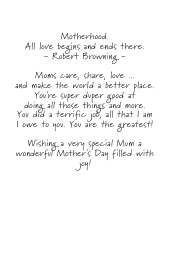 Motherhood.
All love begins and ends there.
- Robert Browning -
Moms care, share, love ...
and make the world a better place.
You're super duper good at
doing all those things and more.
You did a terrific job, all that I am
I owe to you. You are the greatest!
Wishing a very special Mum a
wonderful Mother's Day filled with
joy!